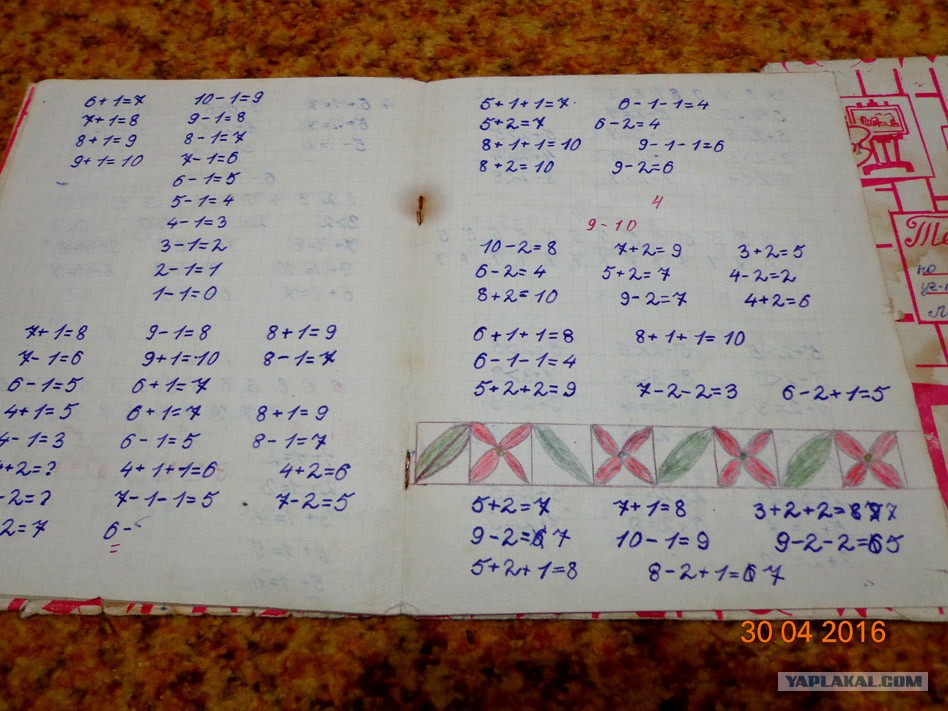 6+1=7 10-1=9
7+1=8 9-1=8
8+1=9 8-1=7
9+1=10 7-1=6
6-1=5
5-1=4
4-1=3
3-1=2
2-1=1
1-1=0
7+1=8 9-1=8 8+1=9
7-1=6 9+1=10 8-1=7
6-1=5 6+1=7
4+1=5 6+1=7 8+1=9
4-1=3 6-1=5 8-1=7
4+2=? 4+1+1=6 4+2=6
-2=? 7-1-1=5 7-2=5
2=7 6-
5+1+1=7 6-1-1=4
5+2=7 6-2=4
8+1+1=10 9-1-1=6
8+2=10 9-2=6
4
9-10
10-2=8 7+2=9 3+2=5
6-2=4 5+2=7 4-2=2
8+2=10 9-2=7 4+2=6
6+1+1=8 8+1+1=10
6-1-1=4
5+2+2=9 7-2-2=3 6-2+1=5
5+2=7 7+1=8 3+2+2=7
9-2=7 10-1=9 9-2-2=5
5+2+1=8 8-2+1=7
Те
по
30 04 2016
YAPLAKAL.COM